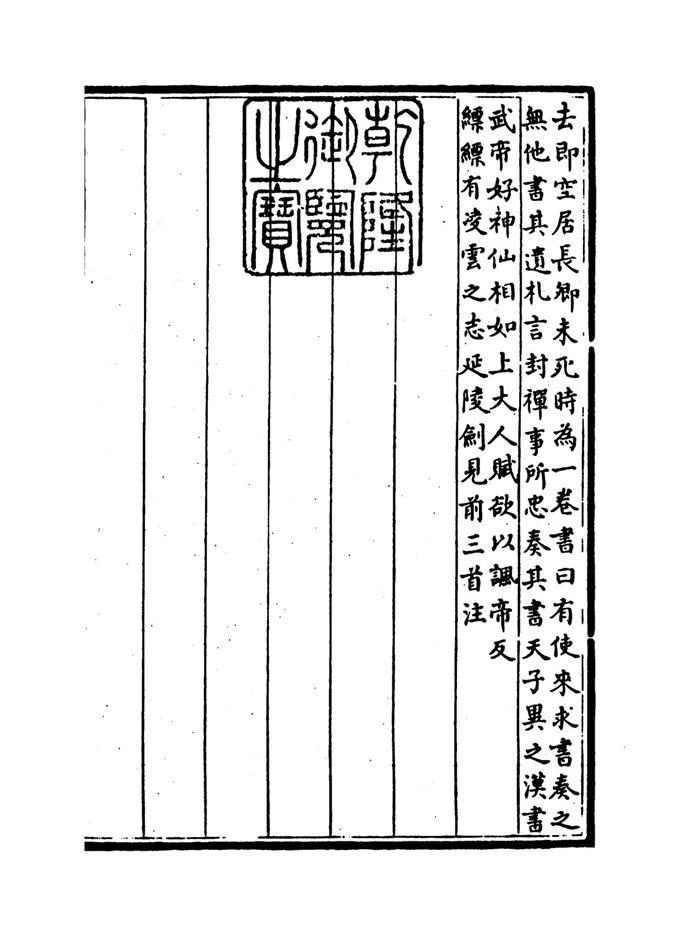 去即空居長卿未死時為一卷書曰有使來求書奏之
無他書其遺札言封禪事所忠奏其書天子異之漢書
武帝好神仙相如上大人賦欲以諷帝反
縹縹有凌雲之志延陵劍見前三首注
乾隆
御覽
之寶